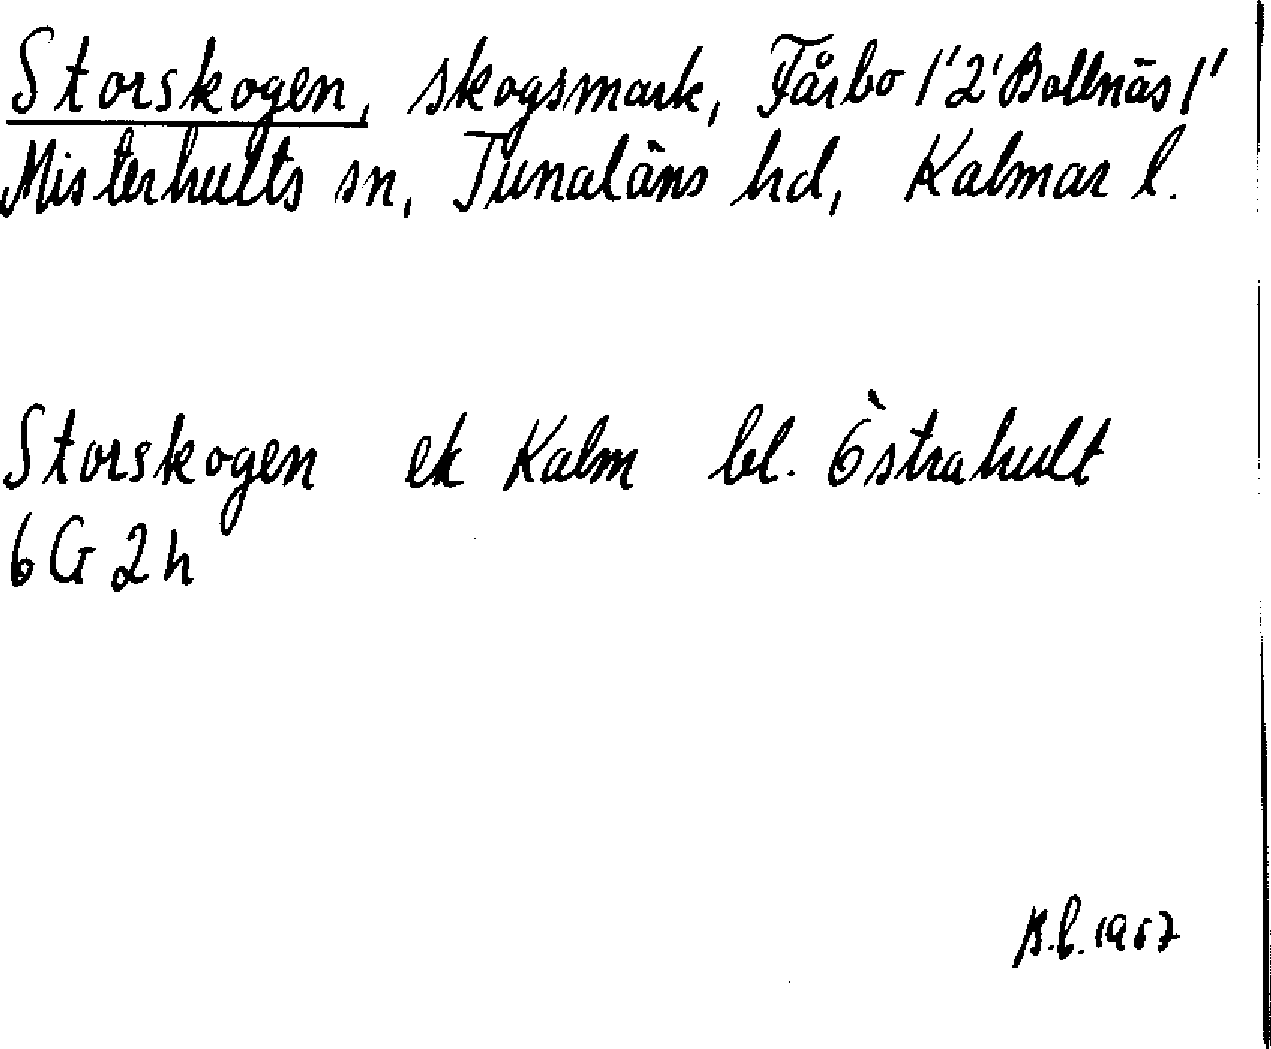 Storskogen, skogsmark, Fårbo 1'2' Bollnäs 1'
Misterhults sn, Tunaläns hd, Kalmar l.
Storskogen ek Kalm bl. Östrahult
6 G 2 h
B.L. 1967